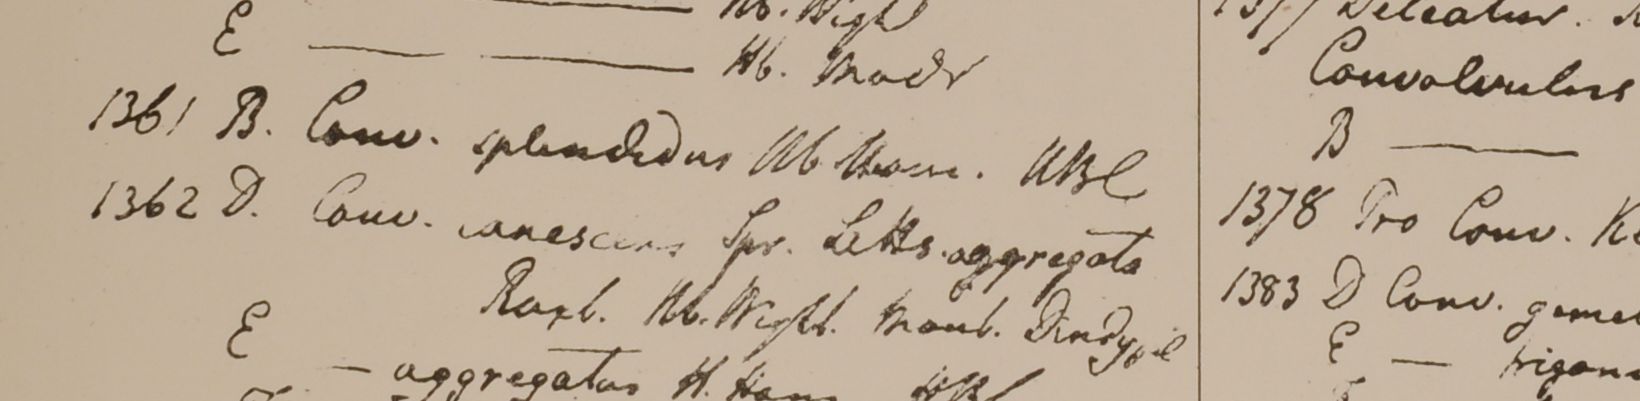 Hb. Wight
E — — Hb. Madr
1361 B. Conv. splendidus Hb Ham. HBC
1362 D. Conv. canescens Spr. Letts. aggregata
Roxb. Hb. Wight. mont. Dindygul
E — aggregatus H. Ham
1377 Deleatur.
Convolvulus
B —
1378 Pro Conv.
1383 D Conv. geme
E — trigon